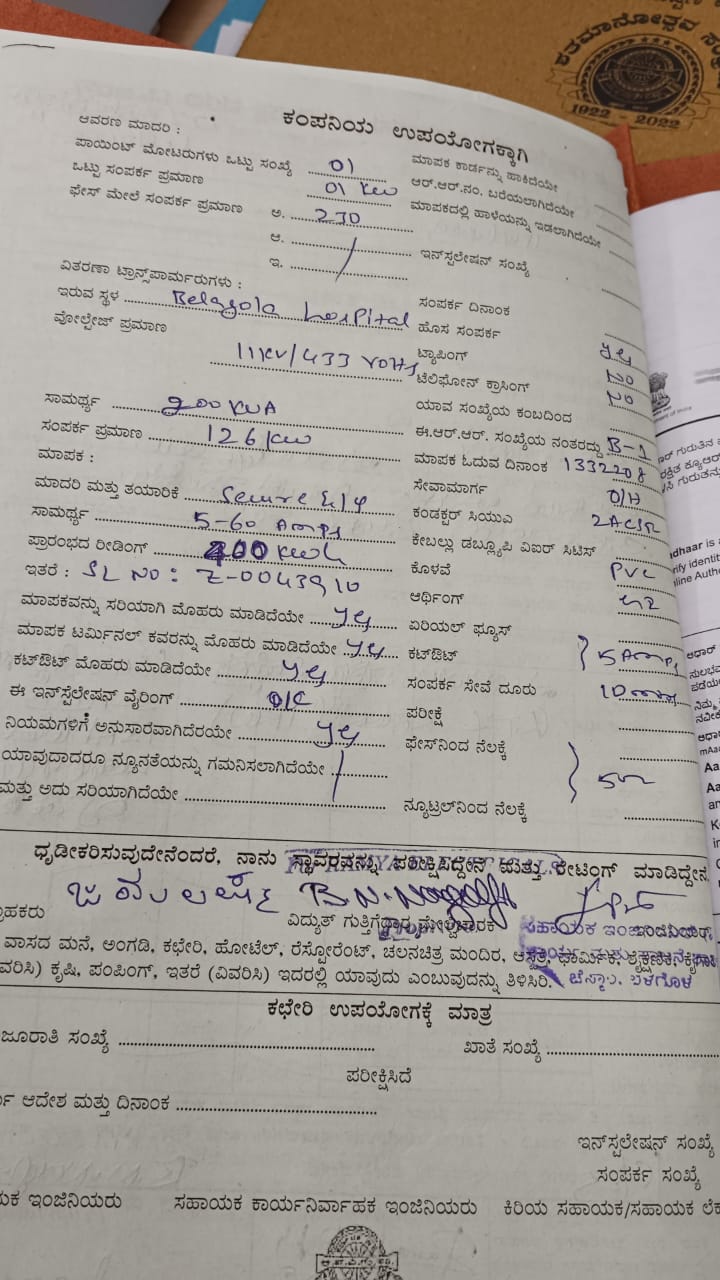 ಶತಮಾನೋತ್ಸವ
1922 - 2022
ಕಂಪನಿಯ ಉಪಯೋಗಕ್ಕಾಗಿ
ಆವರಣ ಮಾದರಿ :
ಪಾಯಿಂಟ್ ಮೋಟರುಗಳು ಒಟ್ಟು ಸಂಖ್ಯೆ 01
ಮಾಪಕ ಕಾರ್ಡನ್ನು ಹಾಕಿದೆಯೇ
ಒಟ್ಟು ಸಂಪರ್ಕ ಪ್ರಮಾಣ 01 KW
ಆರ್.ಆರ್.ನಂ. ಬರೆಯಲಾಗಿದೆಯೇ
ಫೇಸ್ ಮೇಲೆ ಸಂಪರ್ಕ ಪ್ರಮಾಣ ಅ. 230
ಮಾಪಕದಲ್ಲಿ ಹಾಳೆಯನ್ನು ಇಡಲಾಗಿದೆಯೇ
ಆ.
ಇ.
ಇನ್‌ಸ್ಪಲೇಷನ್ ಸಂಖ್ಯೆ
ವಿತರಣಾ ಟ್ರಾನ್ಸ್‌ಪಾರ್ಮರುಗಳು :
ಇರುವ ಸ್ಥಳ Belagola hospital
ಸಂಪರ್ಕ ದಿನಾಂಕ
ವೋಲ್ಟೇಜ್ ಪ್ರಮಾಣ
ಹೊಸ ಸಂಪರ್ಕ yes
11KV/433 Volts
ಟ್ಯಾಪಿಂಗ್ NO
ಟೆಲಿಫೋನ್ ಕ್ರಾಸಿಂಗ್ NO
ಸಾಮರ್ಥ್ಯ 200 KVA
ಯಾವ ಸಂಖ್ಯೆಯ ಕಂಬದಿಂದ
ಸಂಪರ್ಕ ಪ್ರಮಾಣ 126 KW
ಈ.ಆರ್.ಆರ್. ಸಂಖ್ಯೆಯ ನಂತರದ್ದು B-1
ಮಾಪಕ :
ಮಾಪಕ ಓದುವ ದಿನಾಂಕ 1332208
ಮಾದರಿ ಮತ್ತು ತಯಾರಿಕೆ Secure
ಸೇವಾಮಾರ್ಗ O/H
ಸಾಮರ್ಥ್ಯ 5-60 Amps
ಕಂಡಕ್ಟರ್ ಸಿಯುಎ 2ACSR
ಪ್ರಾರಂಭದ ರೀಡಿಂಗ್ 400 KWh
ಕೇಬಲ್ಲು ಡಬ್ಲ್ಯೂಪಿ ವಿಐರ್ ಸಿಟಿಸ್
ಇತರೆ : SL NO: Z-0043910
ಕೊಳವೆ PVC
ಆರ್ಥಿಂಗ್
ಮಾಪಕವನ್ನು ಸರಿಯಾಗಿ ಮೊಹರು ಮಾಡಿದೆಯೇ yes
ಏರಿಯಲ್ ಫ್ಯೂಸ್
ಮಾಪಕ ಟರ್ಮಿನಲ್ ಕವರನ್ನು ಮೊಹರು ಮಾಡಿದೆಯೇ yes
ಕಟ್‌ಔಟ್ 5 Amps
ಕಟ್‌ಔಟ್ ಮೊಹರು ಮಾಡಿದೆಯೇ yes
ಸಂಪರ್ಕ ಸೇವೆ ದೂರು
ಈ ಇನ್‌ಸ್ಪೆಲೇಷನ್ ವೈರಿಂಗ್ O/C
ಪರೀಕ್ಷೆ
ನಿಯಮಗಳಿಗೆ ಅನುಸಾರವಾಗಿದೆರಯೇ yes
ಫೇಸ್‌ನಿಂದ ನೆಲಕ್ಕೆ
ಯಾವುದಾದರೂ ನ್ಯೂನತೆಯನ್ನು ಗಮನಿಸಲಾಗಿದೆಯೇ
ಮತ್ತು ಅದು ಸರಿಯಾಗಿದೆಯೇ
ನ್ಯೂಟ್ರಲ್‌ನಿಂದ ನೆಲಕ್ಕೆ
ಧೃಡೀಕರಿಸುವುದೇನೆಂದರೆ, ನಾನು ಸ್ಥಾವರವನ್ನು ಪರೀಕ್ಷಿಸಿದ್ದೇನೆ ಮತ್ತು ರೇಟಿಂಗ್ ಮಾಡಿದ್ದೇನೆ
ಗ್ರಾಹಕರು ವಿದ್ಯುತ್ ಗುತ್ತಿಗೆದಾರ ಮೇಲ್ವಿಚಾರಕ ಸಹಾಯಕ ಇಂಜಿನಿಯರ್
ವಾಸದ ಮನೆ, ಅಂಗಡಿ, ಕಛೇರಿ, ಹೋಟೆಲ್, ರೆಸ್ಟೋರೆಂಟ್, ಚಲನಚಿತ್ರ ಮಂದಿರ, ಆಸ್ಪತ್ರೆ, ಧಾರ್ಮಿಕ, ಶೈಕ್ಷಣಿಕ
ವಿವರಿಸಿ) ಕೃಷಿ, ಪಂಪಿಂಗ್, ಇತರೆ (ವಿವರಿಸಿ) ಇದರಲ್ಲಿ ಯಾವುದು ಎಂಬುವುದನ್ನು ತಿಳಿಸಿರಿ. ಬೆಳಗೊಳ
ಕಛೇರಿ ಉಪಯೋಗಕ್ಕೆ ಮಾತ್ರ
ಜೂರಾತಿ ಸಂಖ್ಯೆ
ಖಾತೆ ಸಂಖ್ಯೆ
ಪರೀಕ್ಷಿಸಿದೆ
ಆದೇಶ ಮತ್ತು ದಿನಾಂಕ
ಇನ್‌ಸ್ಪಲೇಷನ್ ಸಂಖ್ಯೆ
ಸಂಪರ್ಕ ಸಂಖ್ಯೆ
ಯಕ ಇಂಜಿನಿಯರು ಸಹಾಯಕ ಕಾರ್ಯನಿರ್ವಾಹಕ ಇಂಜಿನಿಯರು ಕಿರಿಯ ಸಹಾಯಕ/ಸಹಾಯಕ ಲೆಕ